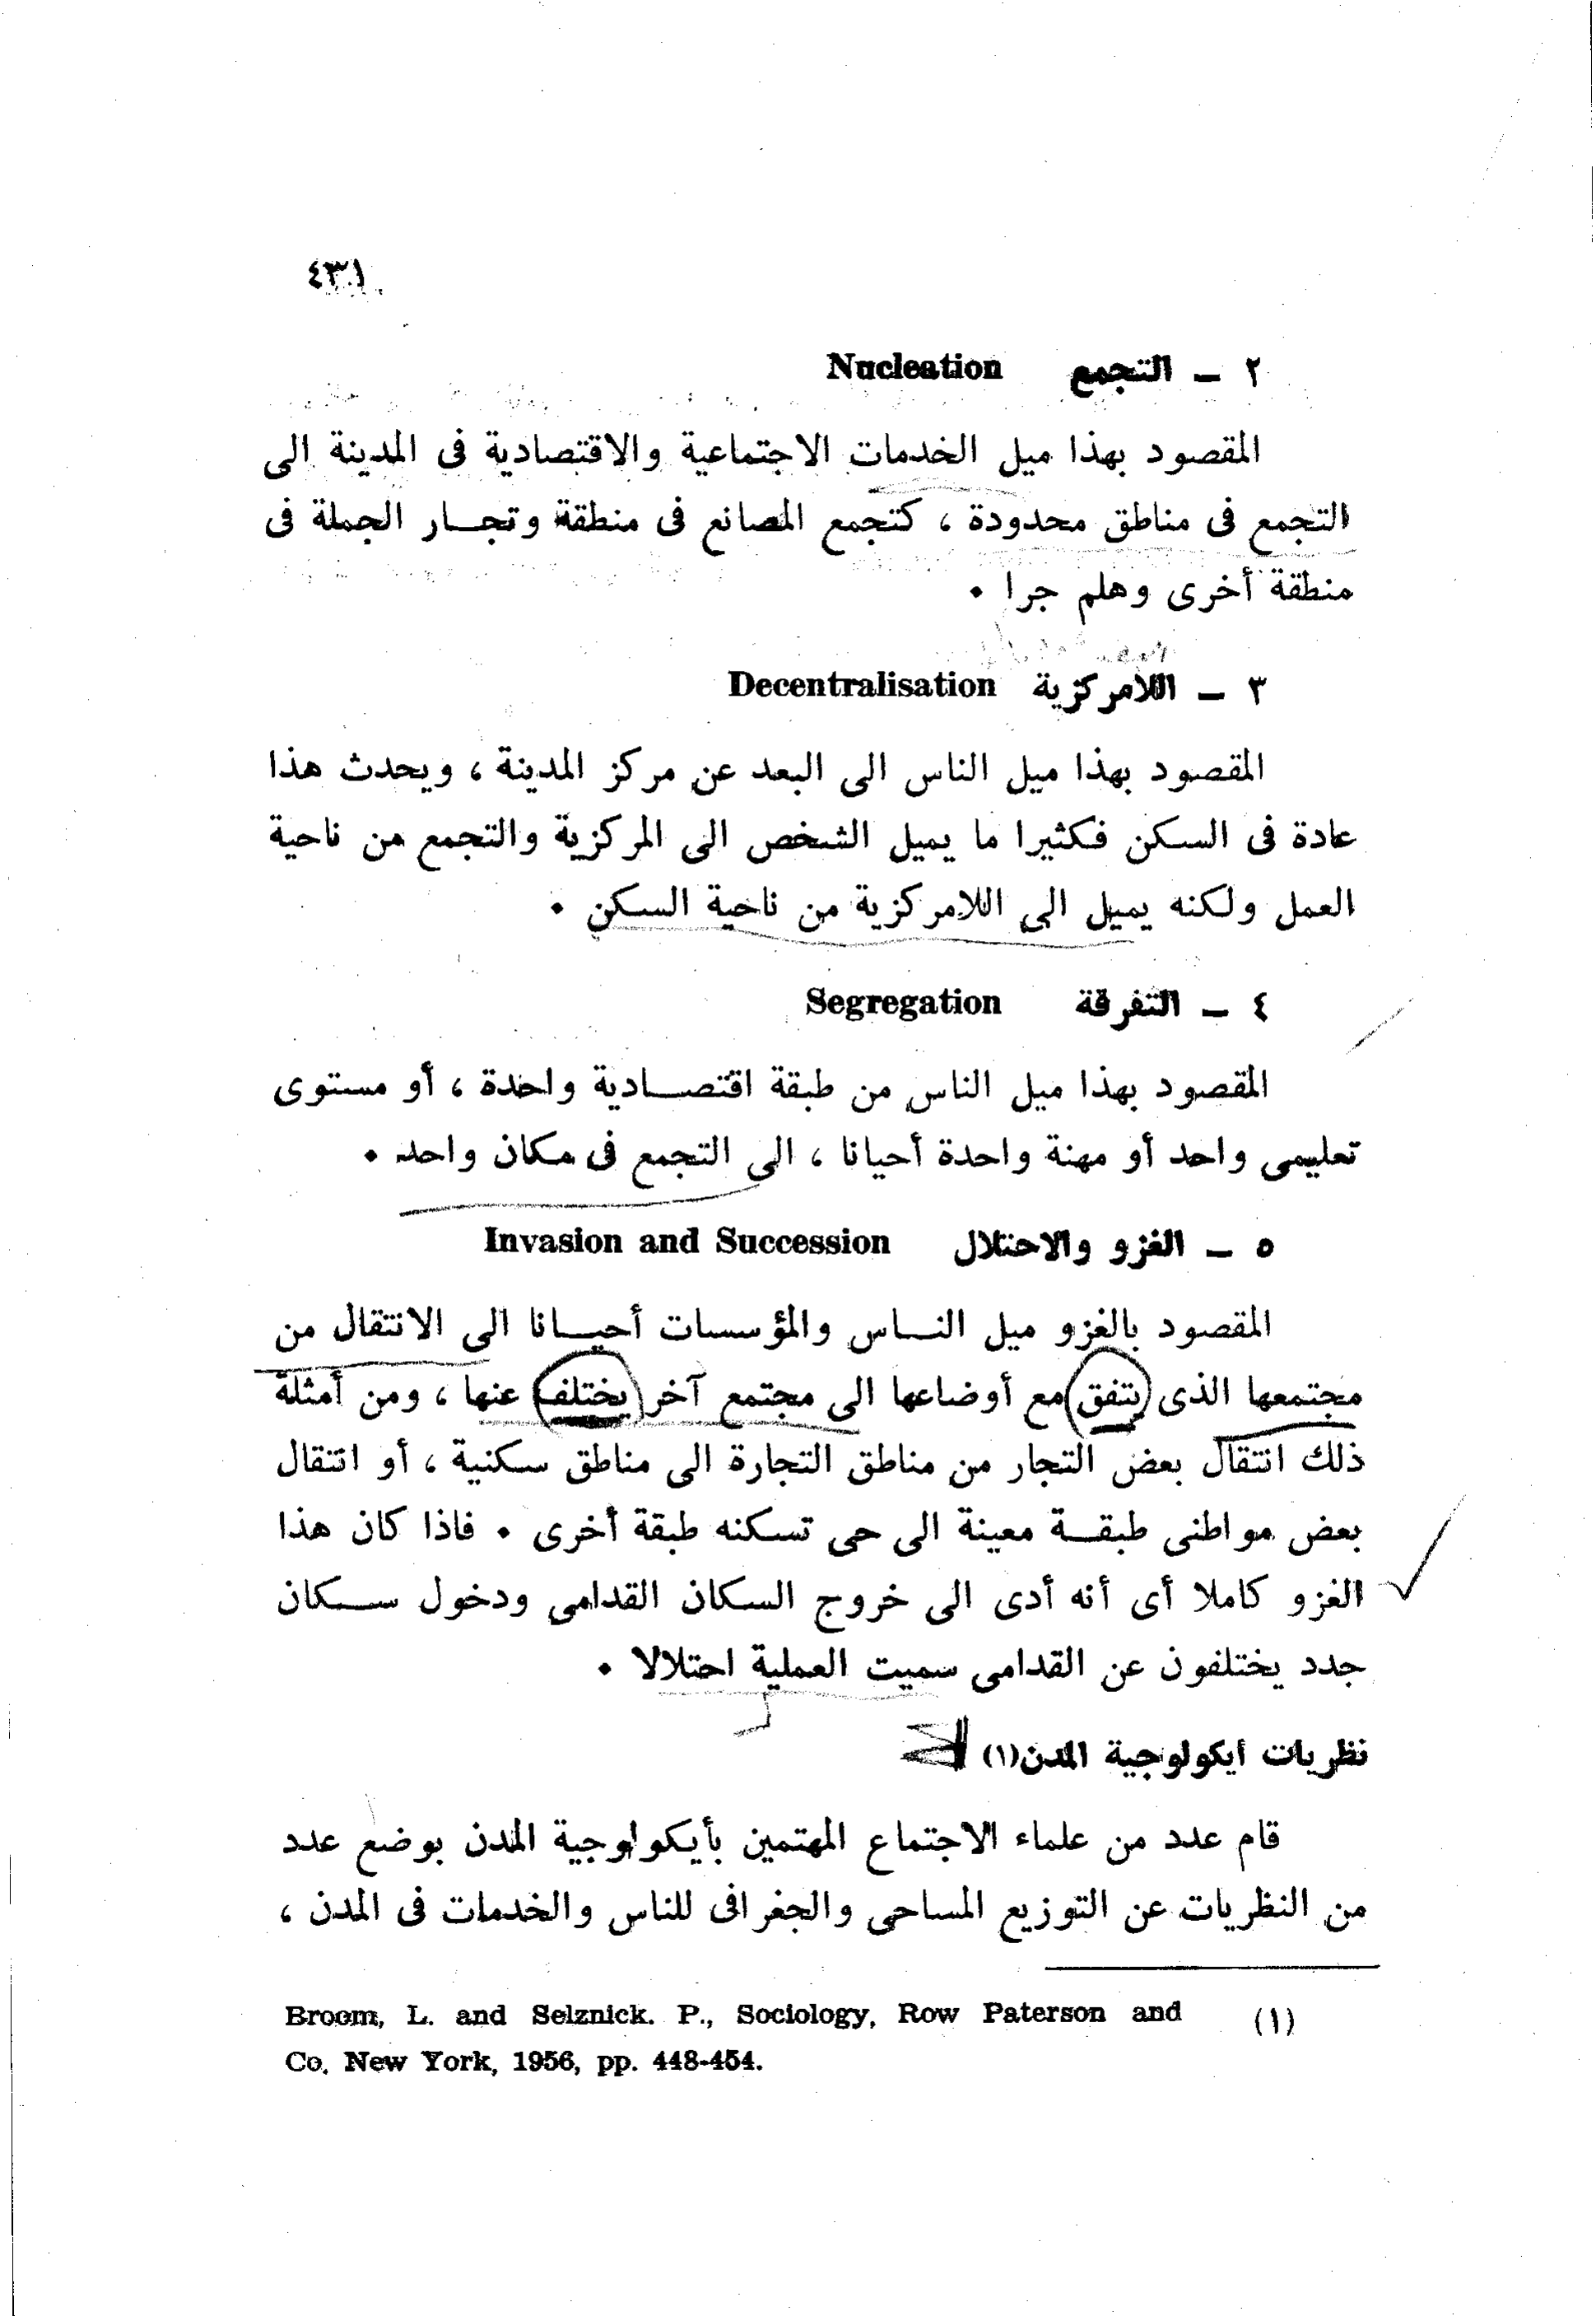 ٤٣١
٢ ــ التجمع Nucleation
المقصود بهذا ميل الخدمات الاجتماعية والاقتصادية فى المدينة الى
التجمع فى مناطق محدودة ، كتجمع المصانع فى منطقة وتجــار الجملة فى
منطقة أخرى وهلم جرا ٠
٣ ــ اللامركزية Decentralisation
المقصود بهذا ميل الناس الى البعد عن مركز المدينة ، ويحدث هذا
عادة فى السكن فكثيرا ما يميل الشخص الى المركزية والتجمع من ناحية
العمل ولكنه يميل الى اللامركزية من ناحية السكن ٠
٤ ــ التفرقة Segregation
المقصود بهذا ميل الناس من طبقة اقتصــادية واحدة ، أو مستوى
تعليمى واحد أو مهنة واحدة أحيانا ، الى التجمع فى مكان واحد ٠
٥ ــ الغزو والاحتلال Invasion and Succession
المقصود بالغزو ميل النــاس والمؤسسات أحيــانا الى الانتقال من
مجتمعها الذى (يتفق) مع أوضاعها الى مجتمع آخر (يختلف) عنها ، ومن أمثلة
ذلك انتقال بعض التجار من مناطق التجارة الى مناطق سكنية ، أو انتقال
بعض مواطنى طبقــة معينة الى حى تسكنه طبقة أخرى ٠ فاذا كان هذا
الغزو كاملا أى أنه أدى الى خروج السكان القدامى ودخول ســكان
جدد يختلفون عن القدامى سميت العملية احتلالا ٠
نظريات أيكولوجية المدن(١)
قام عدد من علماء الاجتماع المهتمين بأيكولوجية المدن بوضع عدد
من النظريات عن التوزيع المساحى والجغرافى للناس والخدمات فى المدن ،
(١) Broom, L. and Selznick. P., Sociology, Row Paterson and
Co. New York, 1956, pp. 448-454.